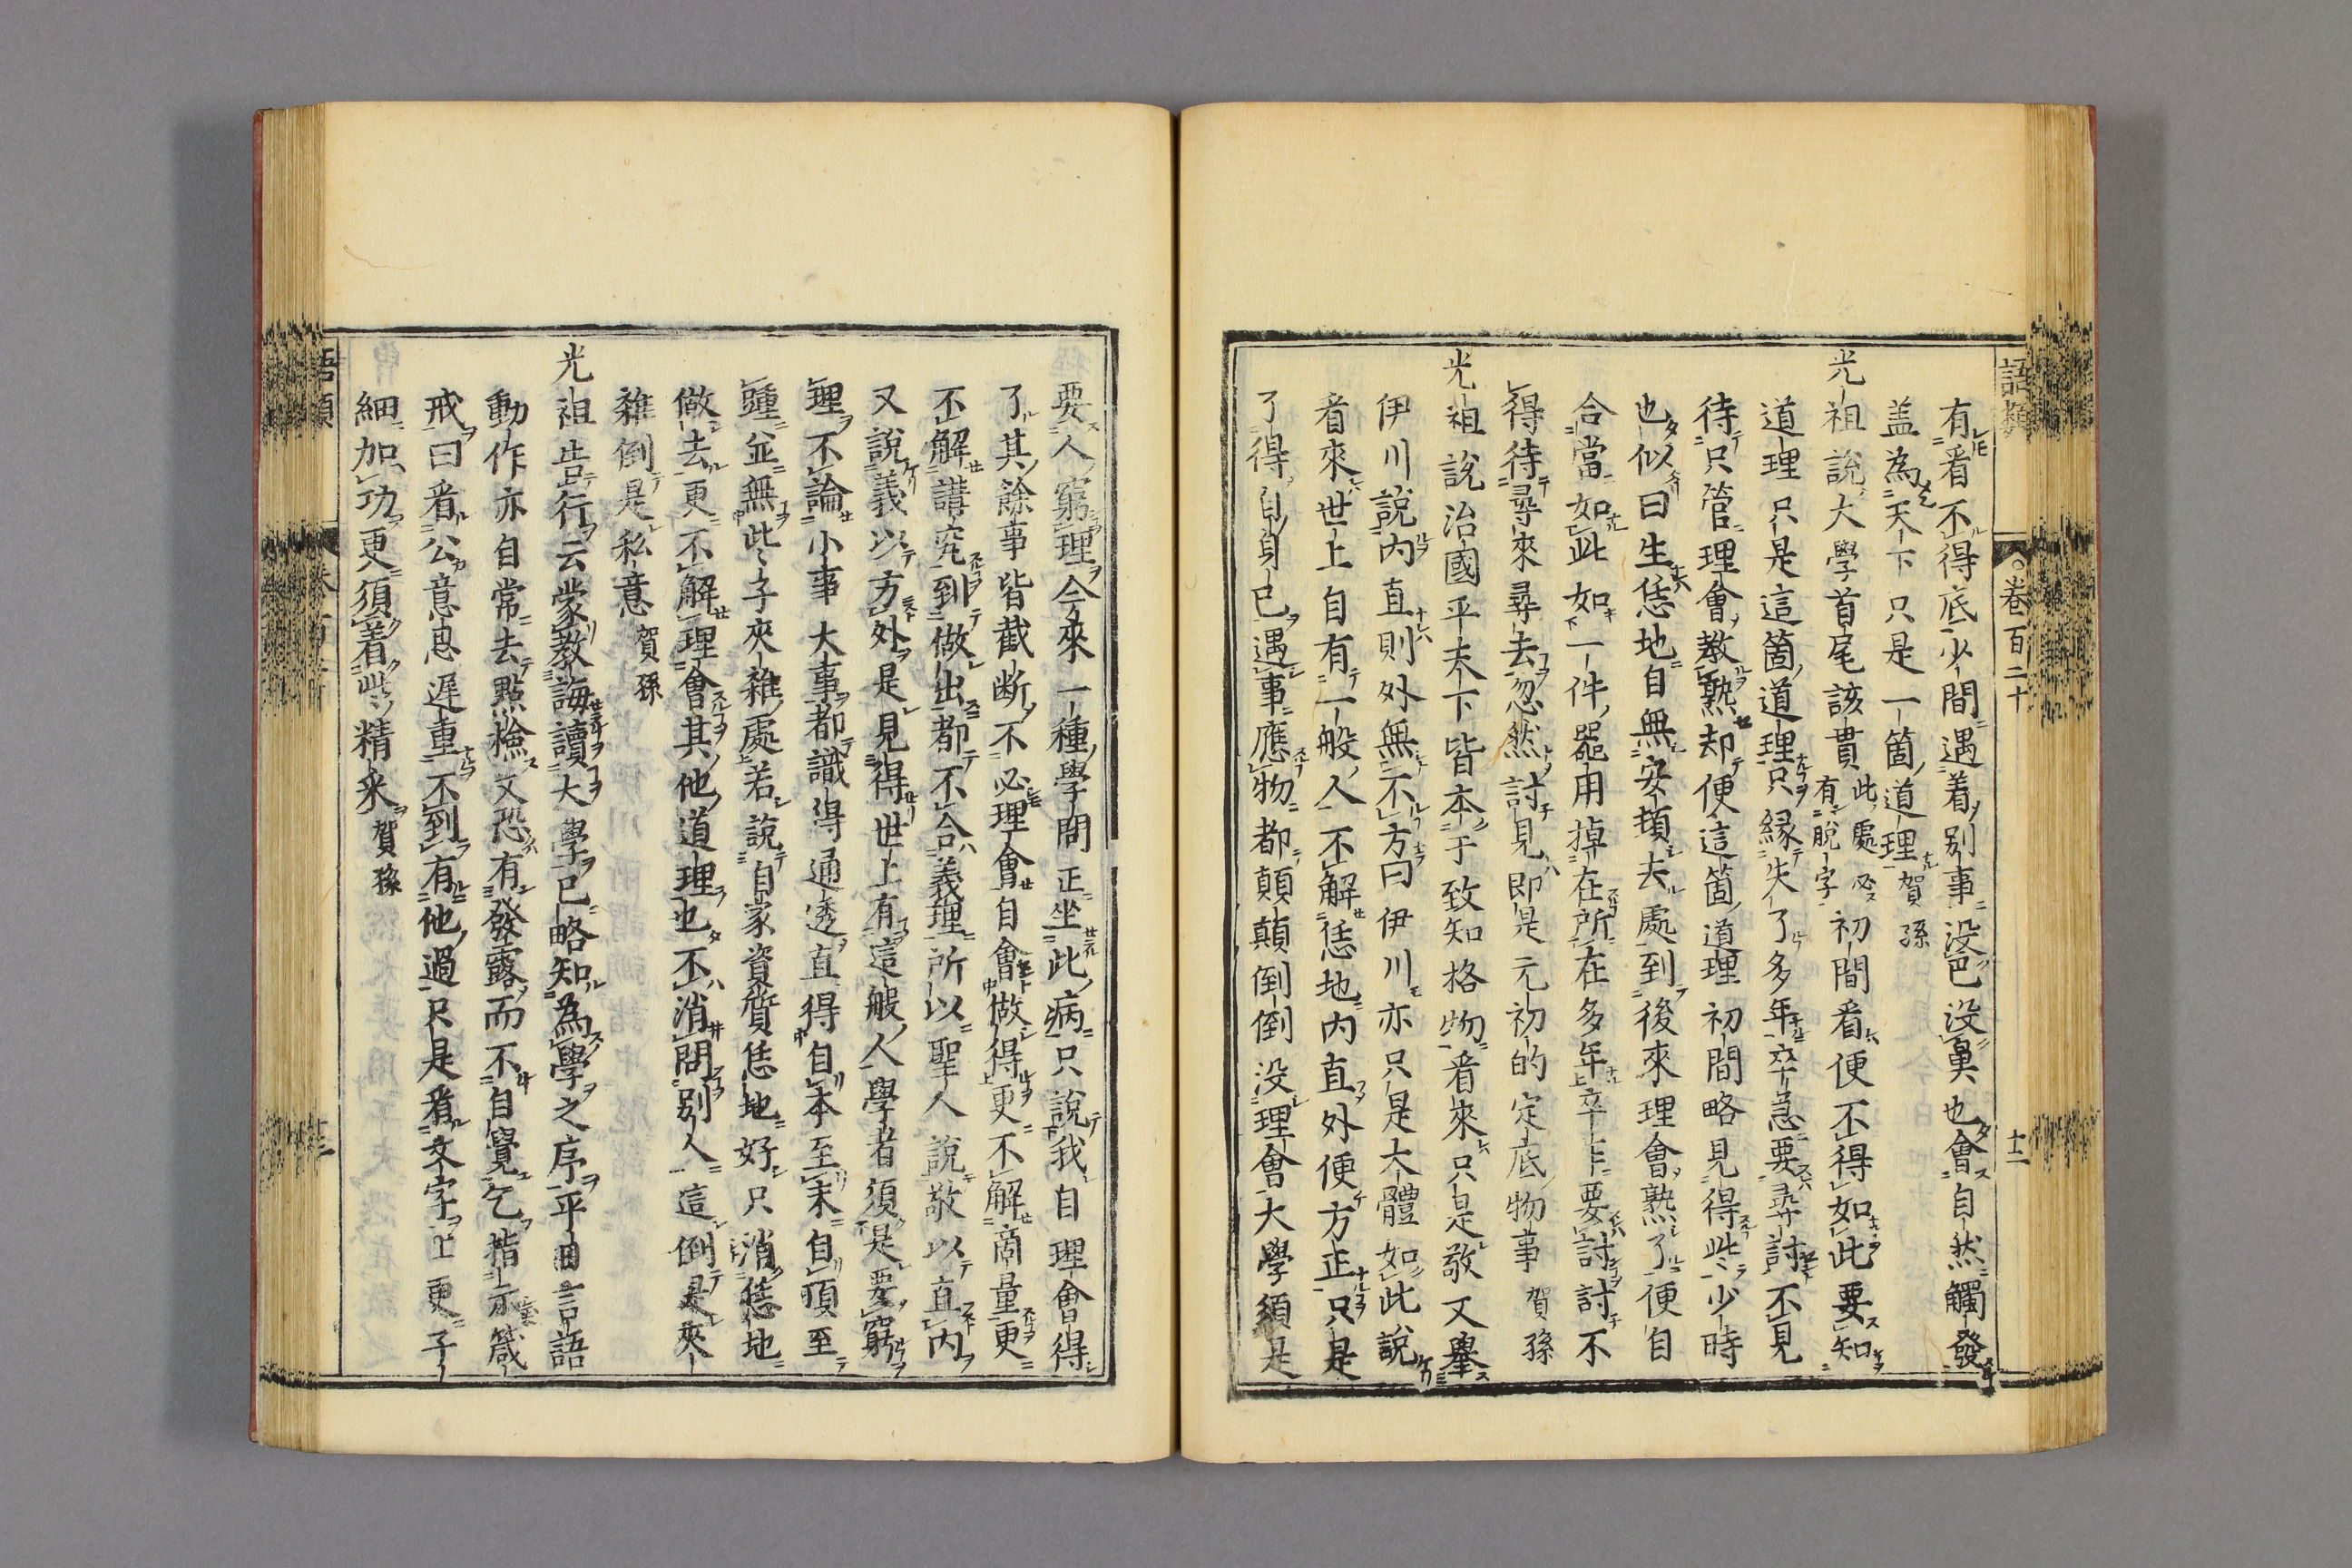 語類 卷百二十 十二
有看不得底少間遇着別事没巴没鼻也會自然觸發
盖為天下只是一箇道理賀孫
光祖說大學首尾該貫此處必有脫字初間看便不得如此要知
道理只是這箇道理只縁失了多年卒急要尋討不見
待只管理會教熟却便這箇道理初間略見得些少時
也似曰生恁地自無安頓去處到後來理會熟了便自
合當如此如一件噐用掉在所在多年卒乍要討討不
得待尋來尋去忽然討見即是元初的定底物事賀孫
光祖說治國平天下皆本于致知格物看來只是敬又舉
伊川說内直則外無不方曰伊川亦只是大體如此說
看來世上自有一般人不解恁地内直外便方正只是
了得自身已遇事應物都顛顛倒倒没理會大學須是
要人窮理今來一種學問正坐此病只說我自理會得
了其餘事皆截断不必理會自會做得更不解商量更
不解講究到做出都不合義理所以聖人說敬以直内
又說義以方外是見得世上有這般人學者須是要窮
理不論小事大事都識得通透直得自本至末自頂至
踵並無些子夾雜處若說自家資質恁地好只消恁地
做去更不解理會其他道理也不消問別人這倒是夾
雜倒是私意賀孫
光祖告行云蒙教誨讀大學已略知為學之序平日言語
動作亦自常去點檢又恐有發露而不自覺乞指示箴
戒曰看公意思遲重不到有他過只是看文字上更子
細加功更須着些精采賀孫
語類